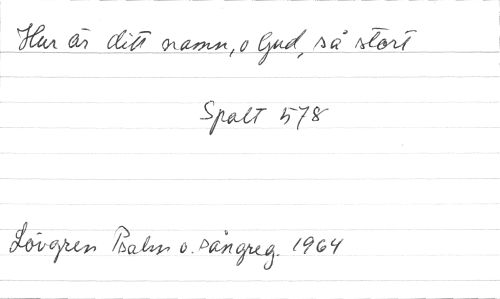 Hur är ditt namn, o Gud, så stort
Spalt 578
Lövgren Psalm o. sångreg. 1964